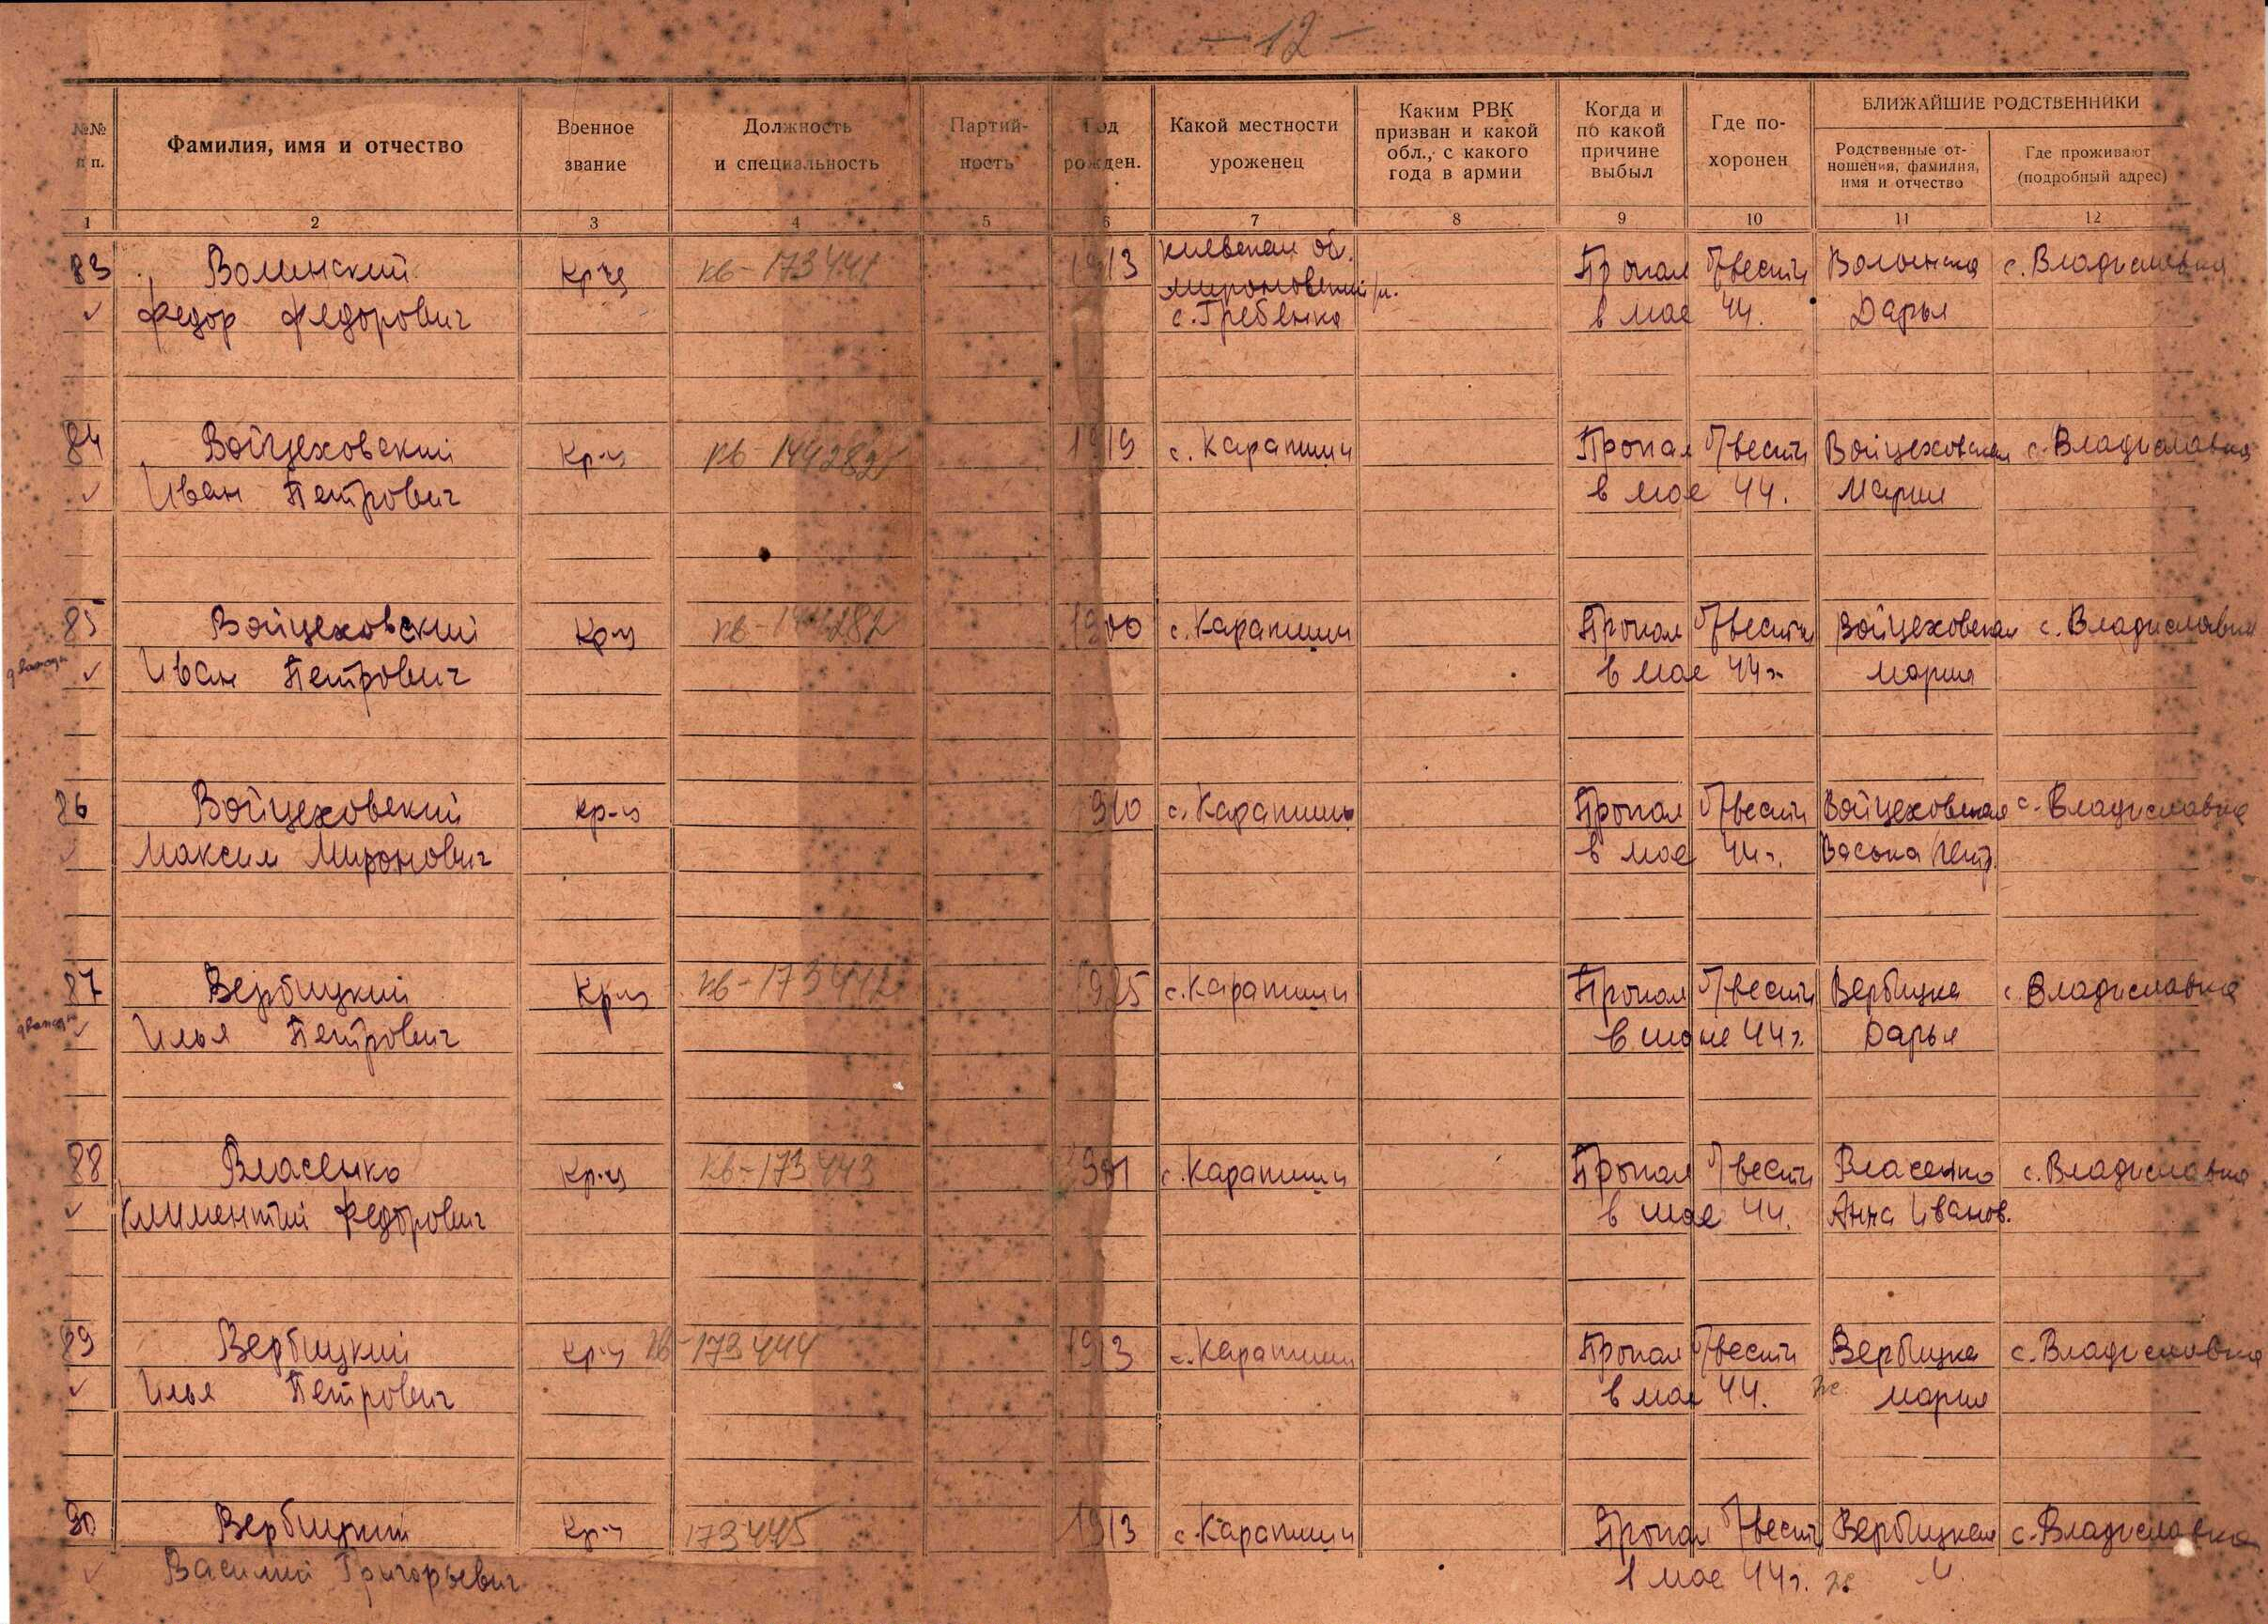 — 12 —
№№ п п. Фамилия, имя и отчество Военное звание Должность и специальность Партий-ность Год рожден. Какой местности уроженец Каким РВК призван и какой обл., с какого года в армии Когда и по какой причине выбыл Где по-хоронен БЛИЖАЙШИЕ РОДСТВЕННИКИ
Родственные от-ношения, фамилия, имя и отчество Где проживают (подробный адрес)
1 2 3 4 5 6 7 8 9 10 11 12
Киевская об.
83 Волинский Кр-ц кв-173441 1913 Мироновский р. Пропал б/вести Волинска с. Владиславка
Федор Федорович с. Гребенка в мае 44. Дарья
84 Войцеховский Кр-ц кв-144282 1919 с. Карапиши Пропал б/вести Войцеховская с. Владиславка
Иван Петрович в мае 44. Мария
85 Войцеховский Кр-ц кв-144282 1900 с. Карапиши Пропал б/вести Войцеховская с. Владиславка
дважды Иван Петрович в мае 44г. Мария
86 Войцеховский Кр-ц 1910 с. Карапиши Пропал б/вести Войцеховская с. Владиславка
Максим Миронович в мае 44г. Петр.
87 Вербицкий Кр-ц кв-173442 1925 с. Карапиши Пропал б/вести Вербицка с. Владиславка
дважды Илья Петрович в 44г. Дарья
88 Власенко Кр-ц кв-173443 1901 с. Карапиши Пропал б/вести Власенко с. Владиславка
Климентий Федорович в мае 44. Анна Иванов.
89 Вербицкий Кр-ц кв-173444 1913 с. Карапиши Пропал б/вести Вербицка с. Владиславка
Илья Петрович в мае 44. же Мария
90 Вербицкий Кр-ц 173445 1913 с. Карапиши Пропал б/вести Вербицкая с. Владиславка
Василий Григорьевич в мае 44г. же М.